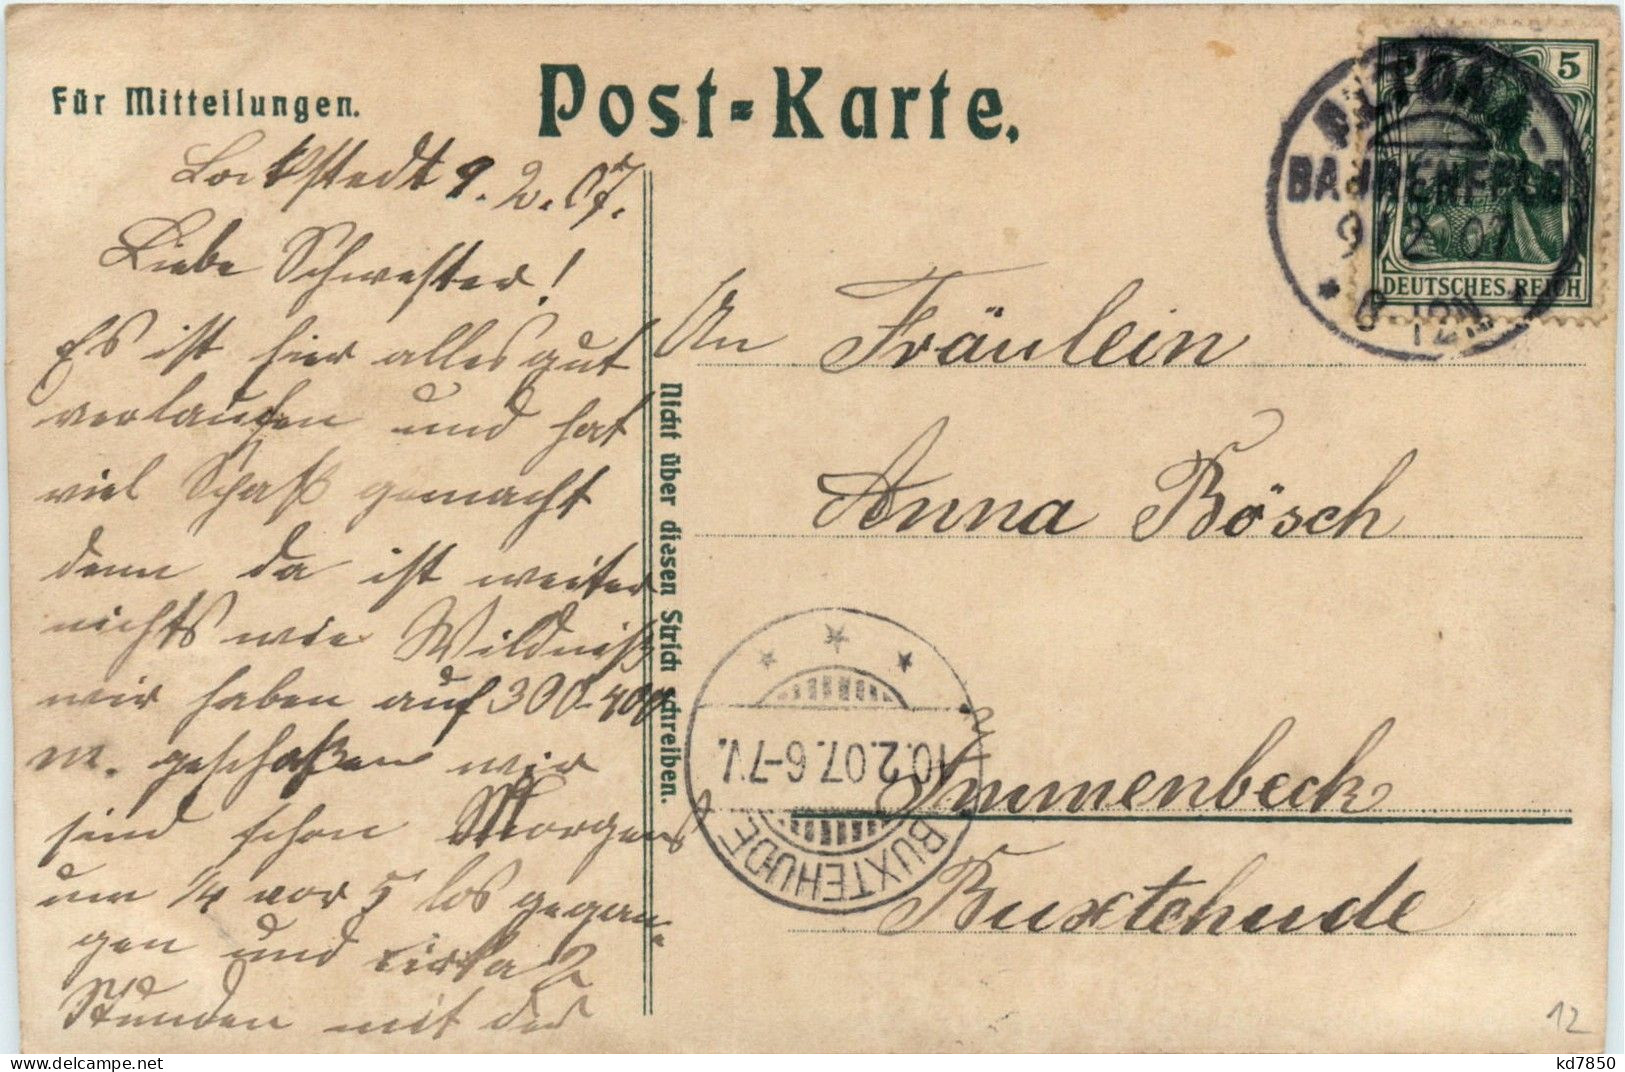 Post-Karte.
Für Mitteilungen.
Lockstedt 9.2.07.
Liebe Schwester!
Es ist hier alles gut
verlaufen und hat
viel Spaß gemacht
denn da ist weiter
nichts wie Wildniß
wir haben auf 300-400
m. geschoßen wir
sind schon Morgens
um 1/4 vor 5 los gegan-
gen und cirka 2
Stunden mit der
Nicht über diesen Strich schreiben.
An Fräulein
Anna Bösch
Immenbeck
Buxtehude
5
DEUTSCHES REICH
ALTONA-
BAHRENFELD
9 2 07
10.2.07.6-7V.
BUXTEHUDE
12
kd7850